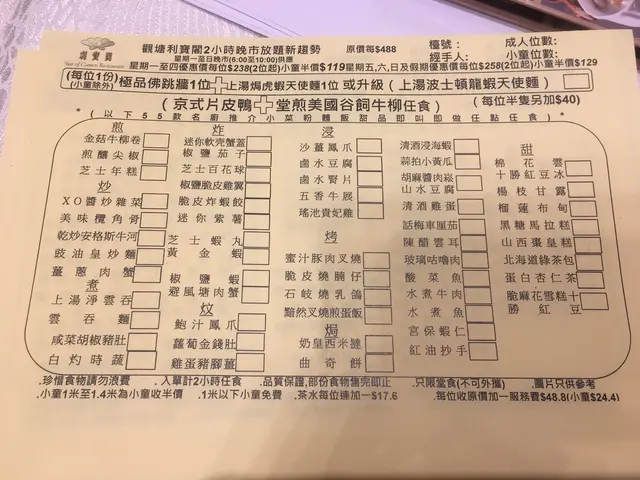 利寶閣
Star of Canton Restaurant
觀塘利寶閣2小時晚市放題新趨勢
原價每$488
檯號：
成人位數：
星期一至日晚市(6:00至10:00)供應
經手人：
小童位數：
星期一至四優惠價每位$238(2位起)小童半價$119星期五,六,日及假期優惠價每位$258(2位起)小童半價$129
(每位1份)
(小童除外)
極品佛跳牆1位+上湯焗虎蝦天使麵1位 或升級 (上湯波士頓龍蝦天使麵)
(京式片皮鴨+堂煎美國谷飼牛柳任食)
(每位半隻另加$40)
*(以下55款名廚推介小菜粉麵飯甜品即叫即做任點任食)*
煎
金菇牛柳卷
煎釀尖椒
芝士年糕
炒
XO醬炒雜菜
美味欖角骨
乾炒安格斯牛河
豉油皇炒麵
薑蔥肉蟹
煮
上湯淨雲吞
雲吞麵
咸菜胡椒豬肚
白灼時蔬
炸
迷你軟壳蟹蓋
椒鹽茄子
芝士百花球
椒鹽脆皮雞翼
脆皮炸蝦餃
迷你紫薯
芝士蝦丸
黃金蝦
椒鹽蝦
避風塘肉蟹
炆
鮑汁鳳爪
蘿蔔金錢肚
雞蛋豬腳薑
浸
沙薑鳳爪
鹵水豆腐
鹵水腎片
五香牛展
瑤池貴妃雞
烤
蜜汁豚肉叉燒
脆皮燒腩仔
石岐燒乳鴿
黯然叉燒煎蛋飯
焗
奶皇西米撻
曲奇餅
清酒浸海蝦
蒜拍小黃瓜
胡麻醬肉崧
山水豆腐
清酒雞蛋
話梅車厘茄
陳醋雲耳
玻璃咕嚕肉
酸菜魚
水煮牛肉
水煮魚
宮保蝦仁
紅油抄手
甜
棉花雲
十勝紅豆冰
楊枝甘露
榴蓮布甸
黑糖馬拉糕
山西棗皇糕
北海道綠茶包
蛋白杏仁茶
脆麻花雪糕十
勝紅豆
.珍惜食物請勿浪費
.入單計2小時任食
.品質保證,部份食物售完即止
.只限堂食(不可外攜)
.圖片只供參考
.小童1米至1.4米為小童收半價
.1米以下小童免費
.茶水每位連加一$17.6
.每位收原價加一服務費$48.8(小童$24.4)